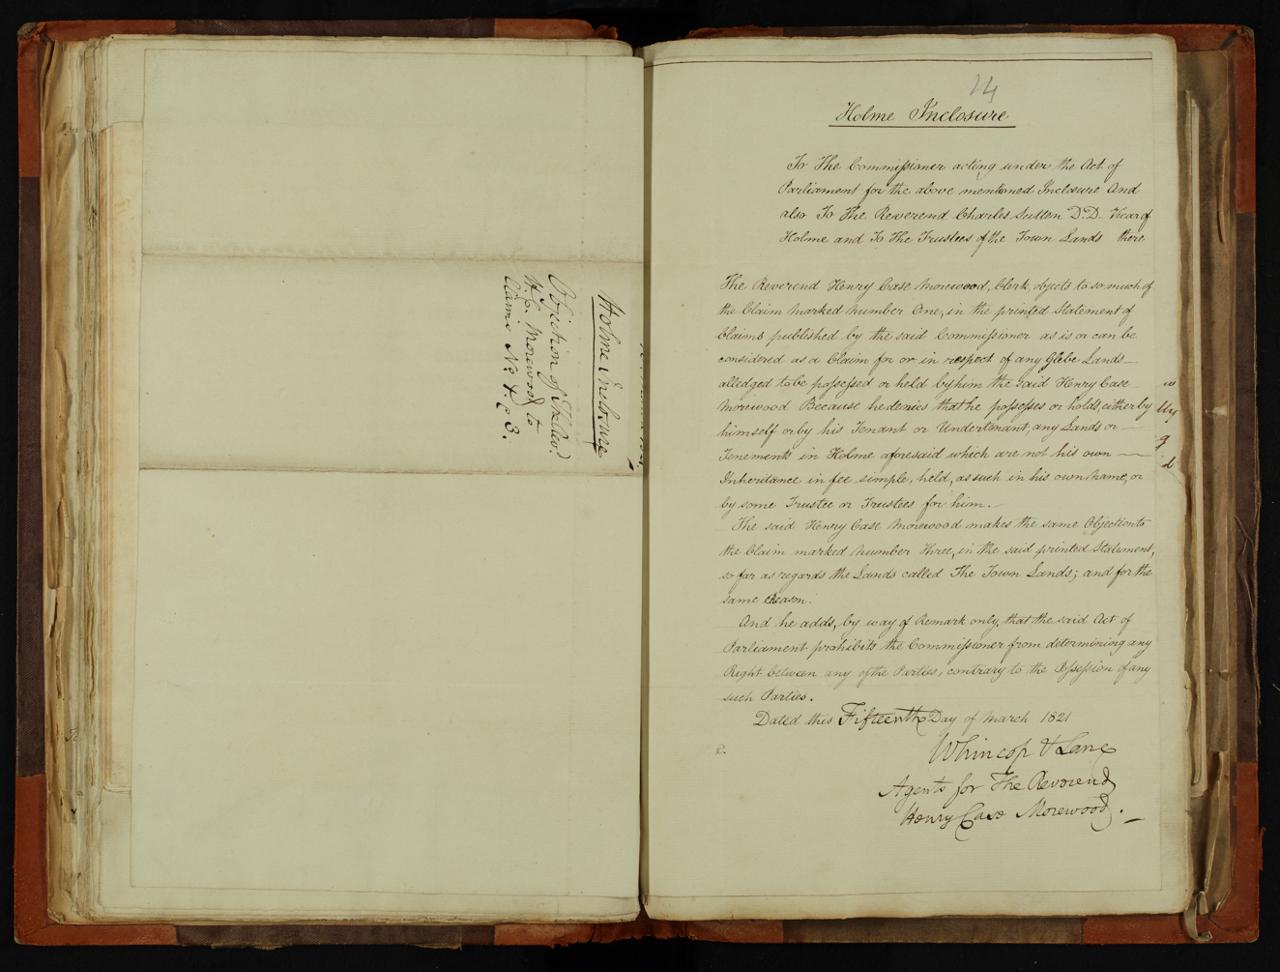 Holme Inclosure
Objection of The Revd.
H. C. Morewood to
Claims No. 1 & 3.
14
Holme Inclosure
To The Commissioner acting under the Act of
Parliament for the above mentioned Inclosure And
also To The Reverend Charles Sutton D.D. Vicar of
Holme and To The Trustees of the Town Lands there
The Reverend Henry Case Morewood, Clerk, objects to so much of
the Claim marked Number One, in the printed Statement of
Claims published by the said Commissioner as is or can be
considered as a Claim for or in respect of any Glebe Lands
alledged to be possessed or held by him the said Henry Case
Morewood Because he denies that he possesses or holds, either by
himself or by his Tenant or Undertenant, any Lands or
Tenements in Holme aforesaid which are not his own
Inheritance in fee simple, held, as such in his own name, or
by some Trustee or Trustees for him.
The said Henry Case Morewood makes the same Objection to
the Claim marked Number Three, in the said printed Statement,
so far as regards the Lands called The Town Lands; and for the
same Reason.
And he adds, by way of Remark only, that the said Act of
Parliament prohibits the Commissioner from determining any
Right between any of the Parties, contrary to the Possession of any
such Parties.
Dated this Fifteenth Day of March 1821
Whincop & Lane
Agents for The Reverend
Henry Case Morewood.